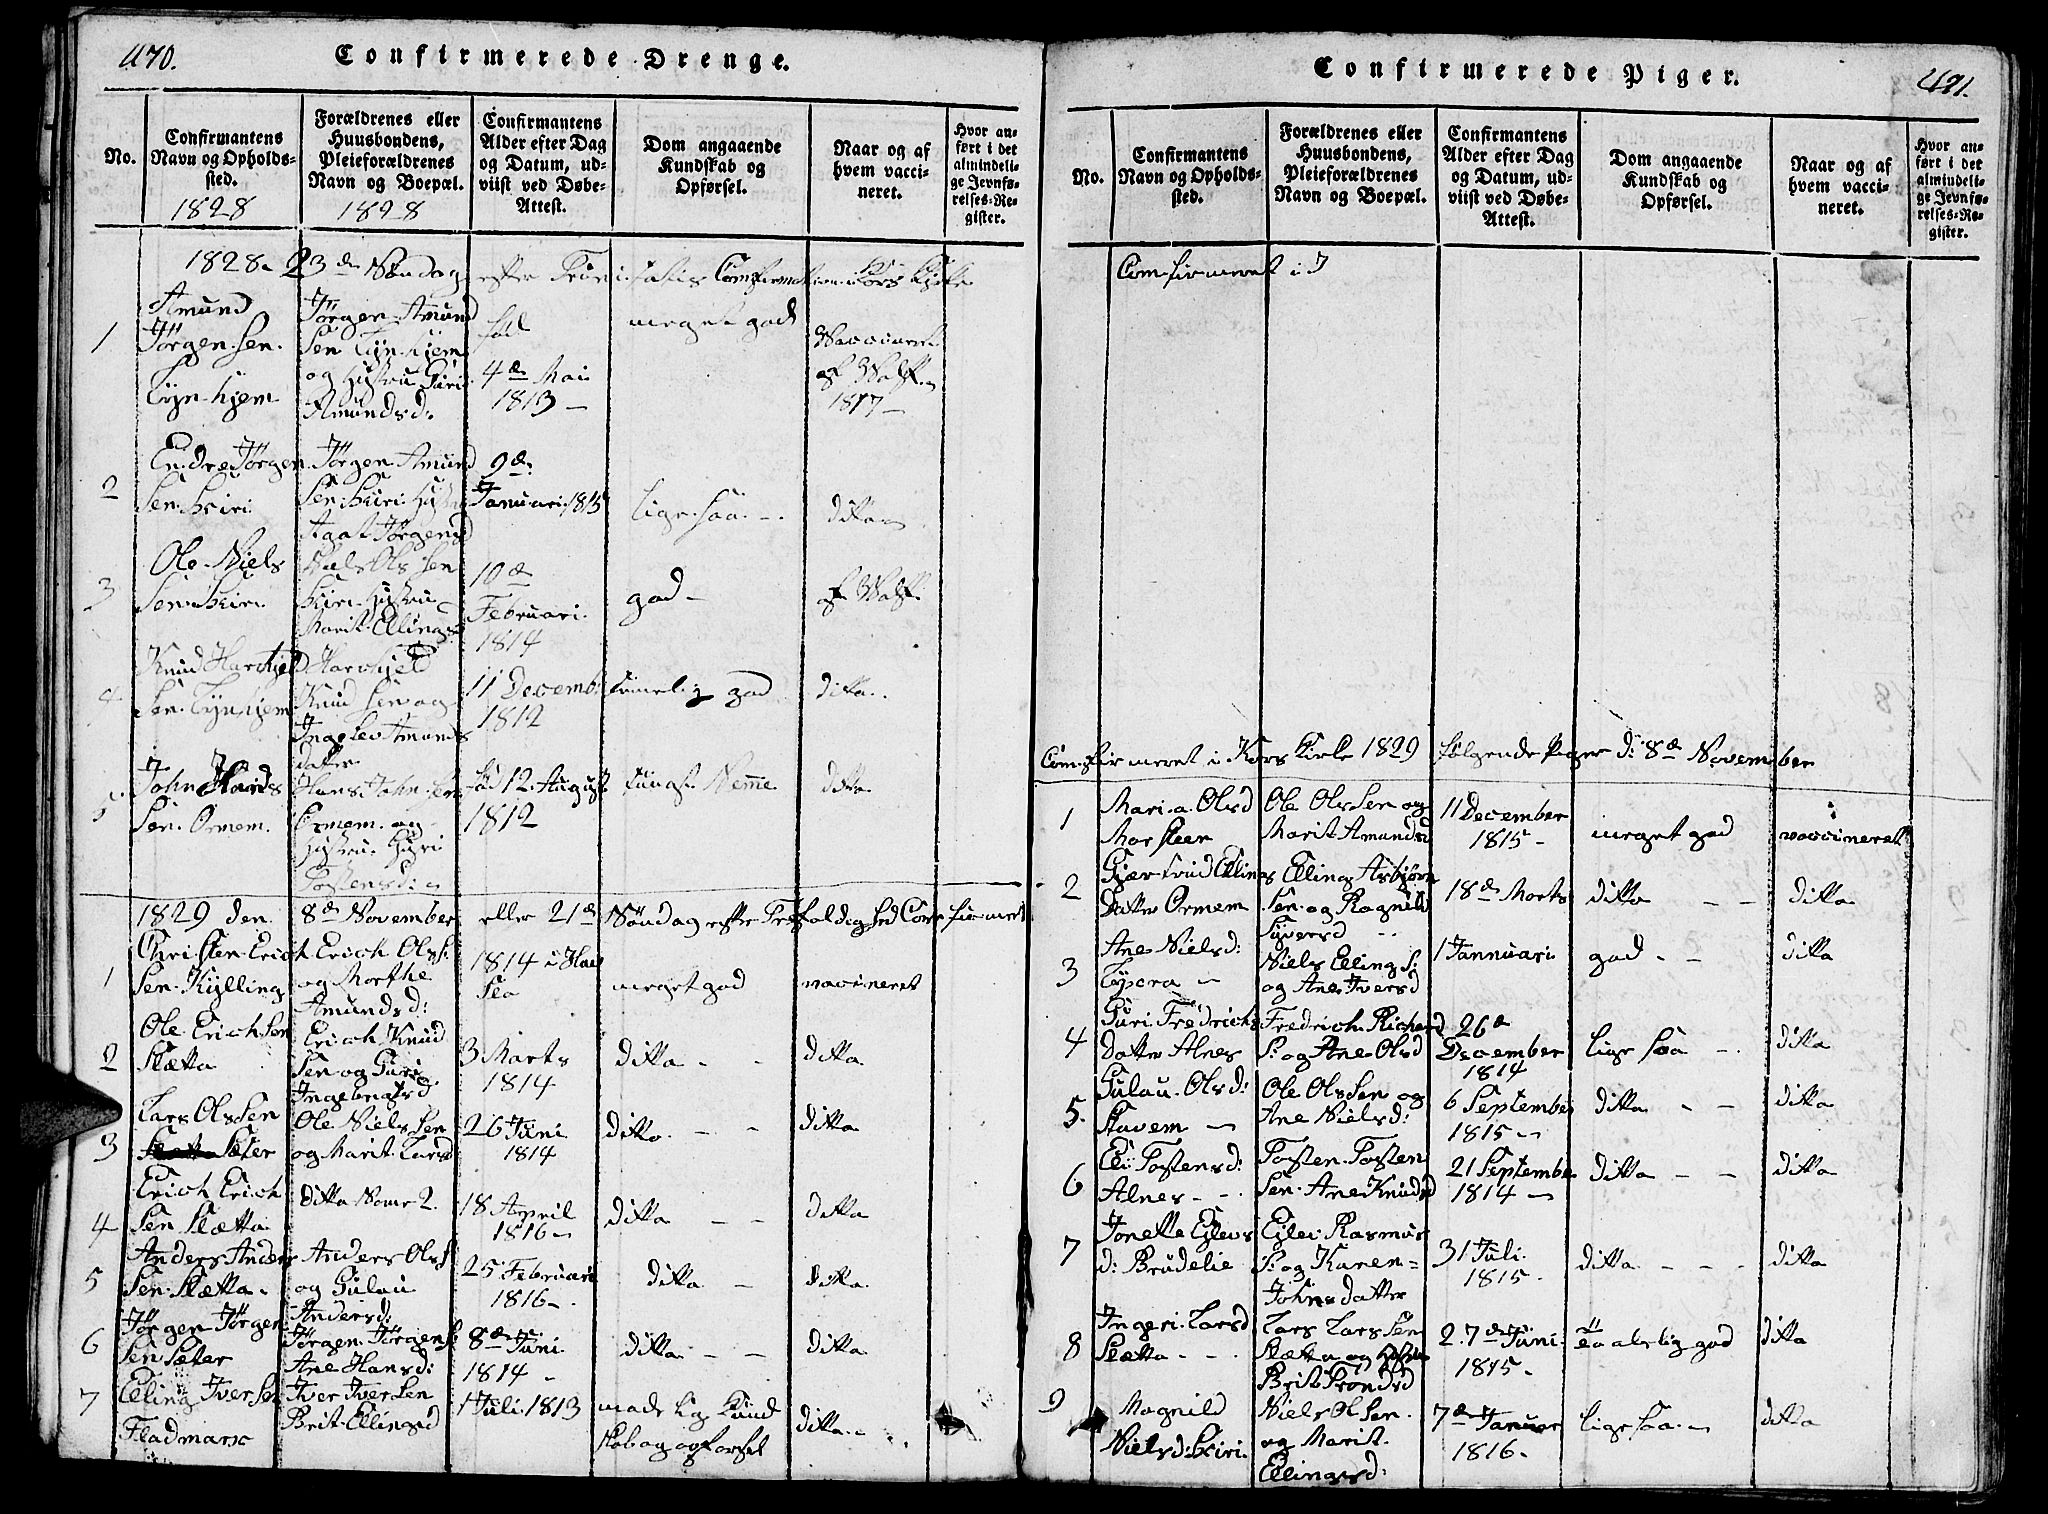 470.
Confirmerede Drenge.
No.
Confirmantens
Navn og Opholds-
sted.
1828
Forældrenes eller
Huusbondens,
Pleieforældrenes
Navn og Boepæl.
1828
Confirmantens
Alder efter Dag
og Datum, ud-
viist ved Døbe-
Attest.
Dom angaaende
Kundskab og
Opførsel.
Naar og af
hvem vacci-
neret.
Hvor an-
ført i det
almindeli-
ge Jevnfø-
relses-Re-
gister.
1828. 23de Søndag efter Confirmation Kors Kirke
1
Amund
Jørgen-Sen.
Jørgen-Amund
Sen
og Hustru Guri
Amundsd:
4de Mai
1813
meget god
Vaccineret
af
1817
2
Endre Jørgen
Sen. Skiri
Jørgen Amund
Sen. Skiri Hustru
Agat Jørgensd
9de
Januari 1815
lige saa
ditta
3
Ole Niels
Sen Skiri
Niels Ols Sen
Skiri Hustru
Marit Ellings
10de
Februari
1814
god
af
4
Knud
Sen.
Knud Sen og
Amunds
datter
11 Decemb
1812
god
ditta
5
John Hans
Sen. Ormem.
Hans John Sen
Ormem og
Hustru Guri
Tostensd:
12 August
1812
Nemme
ditta
1829 den 8de November eller 21de Søndag efter Trefoldighed Confirmeret
1
Christen Erich
Sen. Kylling
Erich Ols S:
og Marthe
Amundsd:
1814
meget god
vaccineret
2
Ole Erich Sen
Slætta
Erich Knud
Sen og Guri
3 Marts
1814
ditta
ditta
3
Lars Ols Sen
Sæter
Ole Niels Sen
og Marit Larsd
26 Juni
1814
ditta
ditta
4
Erich Erich
Sen Slætta
ditta Nomr 2.
18 April
1816
ditta
ditta
5
Anders Anders
Sen Slætta
Anders Ols S
og Gulau
Andersd:
25 Februari
1816
ditta
ditta
6
Jørgen Jørgen
Sen Sæter
Jørgen Jørgen S:
Ane Hansd:
8de Juni
1814
ditta
ditta
7
Elling Iver Sen
Fladmarx
Iver Iver Sen
Brit Ellingsd
1 Juli 1813
ditta
Confirmerede Piger.
No.
Confirmantens
Navn og Opholds-
sted.
Forældrenes eller
Huusbondens,
Pleieforældrenes
Navn og Boepæl.
Confirmantens
Alder efter Dag
og Datum, ud-
viist ved Døbe-
Attest.
Dom angaaende
Kundskab og
Opførsel.
Naar og af
hvem vacci-
neret.
Hvor an-
ført i det
almindeli-
ge Jevnfø-
relses-Re-
gister.
Confirmeret i
Confirmeret i Kors Kirke 1829 følgende Piger d: 8de November
1
Mari-a. Olsd
Marsteen
Ole Ols Sen og
Marit Amundsd
11 December
1815
meget god
vaccineret
2
Ellings
Datter Ormem
Elling Asbjørn
Sen og Ragnild
Syversd
18de Marts
ditta
ditta
3
Ane Nielsd:
Niels Elling S:
og Ane Iversd
1 Jannuari
god
ditta
4
Guri Fredrichs
Datter Alnes
Fredrich Richard
S: og Ane Olsd
26de
December
1814
lige saa
ditta
5.
Gulau. Olsd:
Stavem
Ole Ols Sen og
Ane Nielsd:
6 September
1815
ditta
ditta
6
Eli Tostensd:
Alnes
Tosten Tosten
Sen. Ane Knudsd
21 September
1814
ditta
ditta
7
Jonette Ejlevs
d: Brudelie
Ejlev Rasmus
S: og Karen=
Johnsdatter
31 Juli
1815
ditta
ditta
8
Ingeri Larsd
Slætta
Lars Lars Sen
Slætta og Hustru
Brit Trondsd
27de Juni
1815
god
ditta
9
Magnild
Nielsd: Skiri
Niels Ol Sen
og Marit
Ellingsd:
7de Januar
1816
lige saa
ditta